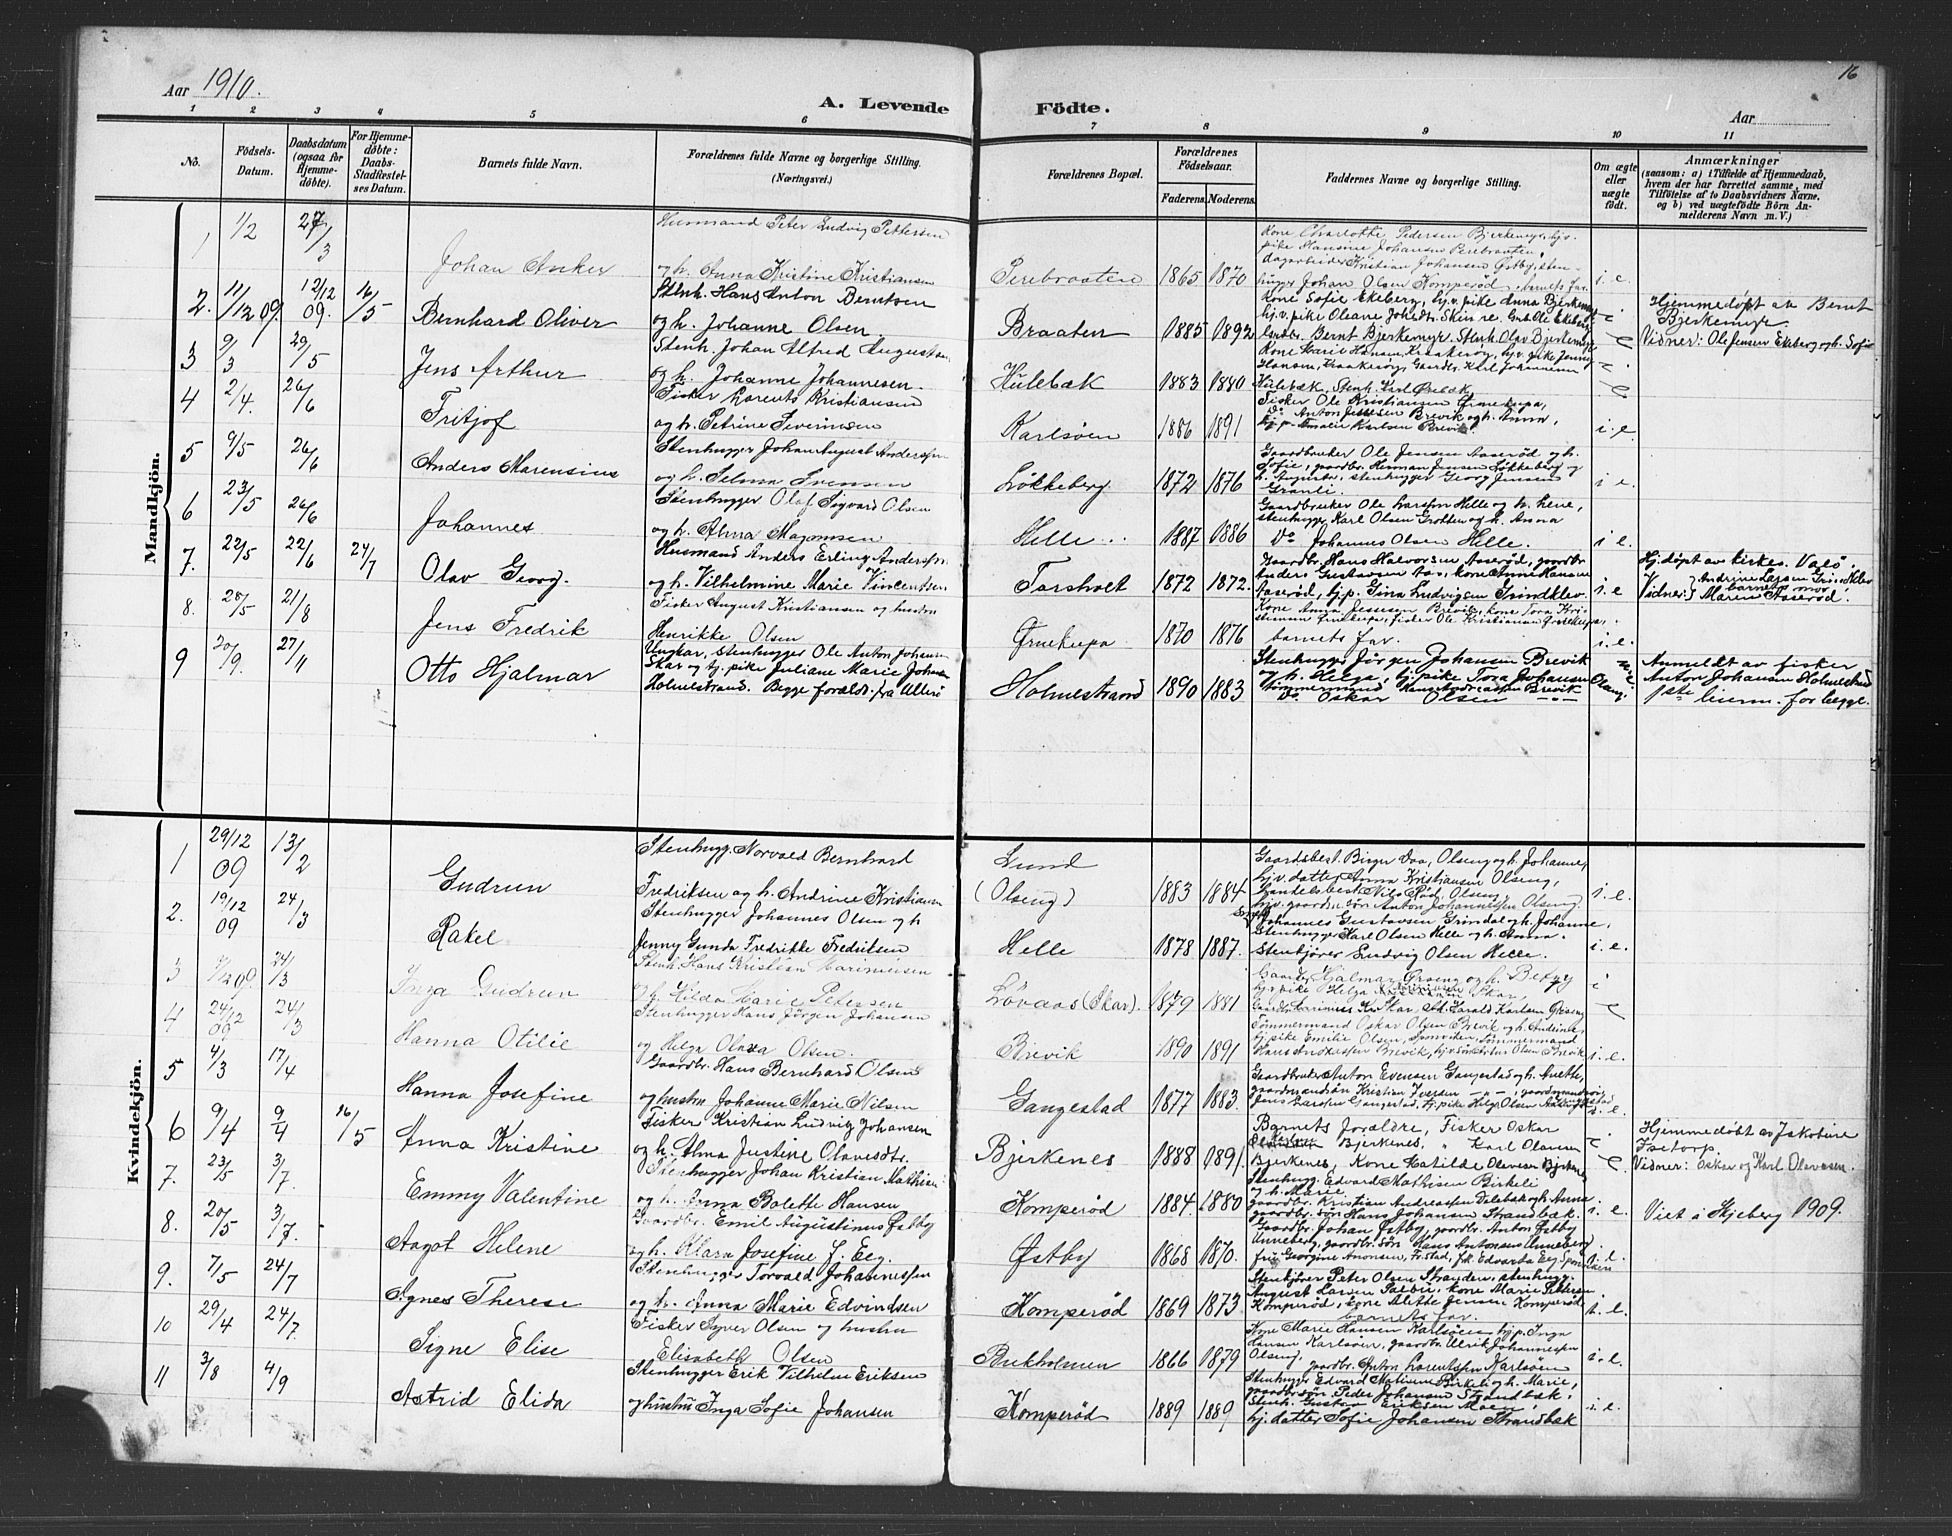 16
Aar 1910.
A. Levende Födte.
Aar
1 2 3 4 5 6 7 8 9 10 11
No.
Födsels-
Datum.
Daabsdatum
(ogsaa for
Hjemme-
döbte).
For Hjemme-
döbte:
Daabs-
Stadfæstel-
ses Datum.
Barnets fulde Navn.
Forældrenes fulde Navne og borgerlige Stilling.
(Næringsvei.)
Forældrenes Bopæl.
Forældrenes
Födselsaar.
Faderens. Moderens.
Faddernes Navne og borgerlige Stilling.
Om ægte
eller
uægte
født.
Anmærkninger
(saasom: a) i Tilfælde af Hjemmedaab,
hvem der har forrettet samme, med
Tilföielse af to Daabsvidners Navne,
og b) ved uegtefödte Börn An-
melderens Navn m. V.)
Mandkjön.
1 1/2 27/3
Johan Anker
Husmand Peter Ludvig Pettersen
og h. Anna Kristine Kristiansen
Perebraaten 1865 1870
Kone Charlotte Pedersen Bjerkemyr, hjv.
pike Hansine Johansen Perebraaten,
dagarbeider Kristian Johansen Østby, sten-
hugger Johan Olsen Komperød, barnets far.
i e.
2. 11/12 09. 12/12 09. 16/5
Bernhard Oliver
Stenh. Hans Anton Berntsen
og h. Johanne Olsen.
Braaten 1885 1892
Kone Sofie Ekeberg, hjv. pike Anna Bjerkemyr
Gaardbr. Bernt Bjerkemyr, Stenh. Olav Bjerkemyr
i e
Hjemmedøpt av Bernt
Bjerkemyr
Vidner: Ole Jensen Ekeberg og h. Sofie
3 9/3 29/5
Jens Arthur
Stenh. Johan Alfred Augustsen
og h. Johanne Johannesen.
Hulebæk 1883 1880
Kone Marie Hansen, Kraakerøy, hjv. pike Jenny
Hansen, Kraakerøy, Gaardbr. Karl Johannesen
Hulebæk, Stenh. Karl Ørebæk
i e
4 2/4. 26/6
Fritjof
Fisker Lorents Kristiansen
og h. Petrine Severinsen
Karlsøen 1886 1891
Fisker Ole Kristiansen Grnekupa,
Do Anton Jessesen Brevik og h. Anna,
hj. p. Amalie Karlsen Brevik.
i. e.
5 9/5 26/6
Anders Marensius
Stenhugger Johan August Andersen
og h. Selma Svensen
Løkkeberg 1872 1876
Gaardbruker Ole Jensen Aaserød og h.
Sofie, gaardbr. Herman Jensen Løkkeberg og
h. Augusta, stenhugger Georg Jensen
Granli.
i e.
6 23/5 26/6
Johannes
Stenhugger Olaf Sigvard Olsen
og h. Alma Magnussen
Helle 1887 1886
Gaardbruker Ole Larsen Helle og h. Lene,
stenhugger Karl Olsen Grotten og h. Anna
Do Johannes Olsen Helle.
i e.
7. 22/5 22/6 24/7
Olav Georg.
Husmand Anders Erling Andersen
og h. Vilhelmine Marie Vincentsen
Torsholt 1872 1872.
Gaardbr. Hans Halvorsen Aaserød, gaardbr.
Anders Gustavsen Aas, kone Anne Hansen
Aaserød, hj. p. Gina Ludvigsen Grindklev.
i. e
Hj. døpt av kirkes. Valø
barnets mor
Vidner: } Maren Aaserød.
8. 28/5 21/8
Jens Fredrik
Fisker August Kristiansen og hustru
Henrikke Olsen
Grnekupa 1870 1876
Kone Anna Jessesen Brevik, kone Tora Kri-
stiansen Grnekupa, fisker Ole Kristiansen Grnekupa,
barnets far.
i. e.
9 20/9. 27/11
Otto Hjalmar
Ungkar, Stenhugger Ole Anton Johansen
Skar og tj. pike Juliane Marie Johansen
Holmestrand. Begge forældr. fra Ullerø
Holmestrand 1890 1883
Stenhugger Jørgen Johansen Brevik
og h. Helga, hj. pike Tora Johansen
tømmermand Hans Andreassen Brevik
Do Oskar Olsen — " —
Anmeldt av fisker
Anton Johansen Holmestrand
1ste leierm. for begge.
Kvindekjön.
1 29/12 09 13/2
Gudrun
Stenhugg. Norvald Bernhard
Fredriksen og h. Andrine Kristiansen
Lund
(Olseng) 1883 1884
Gaardsbest. Birger Aas, Olseng og h. Johanne,
hjv. datter Anna Kristiansen Olseng,
Handelsbest. Nils Rød, Olseng
hjv. gaardbr. søn Anton Johannessen Olseng.
i. e.
2. 19/12 09 24/3
Rakel
Stenhugger Johannes Olsen og h.
Jenny Gunda Fredrikke Fredriksen
Helle 1878 1887.
Johannes Gustavsen Grindal og h. Johanne,
Stenhugger Karl Olsen Helle og h. Anna.
Stenkjører Ludvig Olsen Helle.
i. e.
3 7/12 09. 24/3
Inga Gudrun
Stenh. Hans Kristian Marinusen
og h. Hilda Marie Petersen
Løvaas (Skar). 1879 1881
i e
4 24/12 09 24/3
Hanna Otilie
Stenhugger Hans Jørgen Johansen
og Helga Olava Olsen.
Brevik 1890 1891
Tømmermand Oskar Olsen Brevik og h. Andrine,
hj. pike Emilie Olsen, tømmermand
Hans Andreassen Brevik,
i. e.
5 4/3 17/4
Hanna Josefine
Gaardbr. Hans Bernhard Olsen
og hustru Johanne Marie Nilsen
Gangestad 1877 1883.
Gaardbruker Anton Evensen Gangestad og h. Anette,
gaardmandsøn Kristian Iversen
Jens Larsen Gangestad, hj. pike Helga Olsen
i. e.
6 9/4 9/4 16/5
Anna Kristine
Fisker Kristian Ludvig Johansen
og h. Alma Justine Olavesdtr.
Bjerkenes 1888 1891.
Barnets Forældre, Fisker Oskar
Bjerkenes, " Karl Olavsen
Bjerkenes, Kone Matilde Olavesen Bjerkenes
i e.
Hjemmedøbt av Jakobine
Isetorp.
Vidner: Oskar og Karl Olavesen.
7. 23/5 3/7.
Emmy Valentine
Stenhugger Johan Kristian Mathisen
og h. Anna Bolette Hansen
Komperød 1884. 1880
Stenhugg. Edvard Mathisen Birkeli
og h. Marie
gaardbr. Kristian Andreassen Dalebæk og h. Anna.
gaardbr. søn Hans Johansen Strandbæk.
i. e.
Viet i Skjeberg 1909.
8. 20/5 3/7.
Aagot Helene
Gaardbr. Emil Augustinus Østby
og h. Klara Josefine J. Eeg
Østby 1868 1870.
Gaardbr. Johan Østby, gaardbr. Anton Østby
Unneberg, gaardbr. søn Hans Antonsen Unneberg,
i. e.
9. 7/5 24/7
Agnes Therese
Stenhugger Torvald Johannessen
og h. Anna Marie Edvindsen
Komperød 1869 1873
Stenkjører Peter Olsen Stranden, stenhugg.
August Larsen kone Marie Pettersen
Komperød, kone Alette Jensen Komperød
barnets far.
i. e.
10 29/4 24/7.
Signe Elise
Fisker Syver Olsen og hustru
Elisabeth Olsen
Bukholmen 1866 1879
Kone Marie Hansen Karlsøen hj. p. Inga
Hansen Karlsøen, gaardbr. Ulrik Johannessen
Olseng, gaardbr. Anton Lorentsen Karlsøen
i. e.
11 3/8 4/9
Astrid Elida
Stenhugger Erik Vilhelm Eriksen
og hustru Inga Sofie Johansen
Komperød 1889 1889
Stenhugger Edvard Matisen Birkeli og h. Marie,
gaardbr. søn Peder Johansen Strandbæk,
Stenh. Gustav Eriksen Moen,
hj. datter Sofie Johansen Strandbæk
i. e.